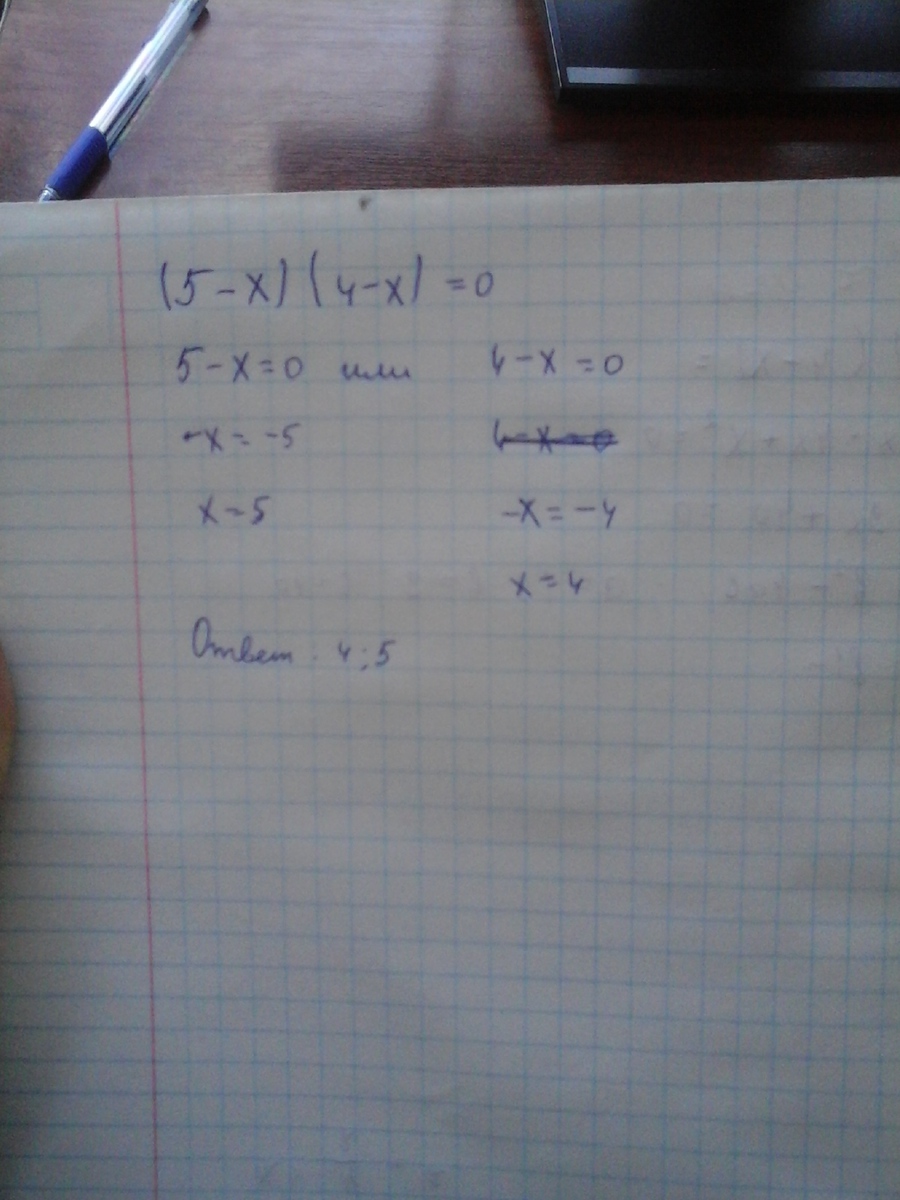 (5-x) (4-x) =0
5-x=0 или 4-x=0
-x=-5
x=5
-x=-4
x=4
Ответ: 4;5